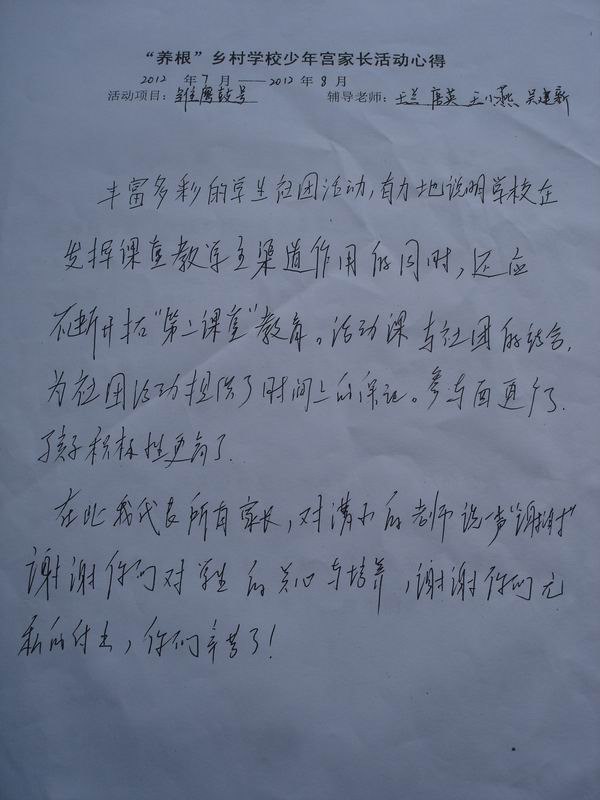 “养根”乡村学校少年宫家长活动心得
2012 年 7 月 —— 2012 年 8 月
活动项目：雏鹰鼓号 辅导老师：王兰 唐英 王小燕、吴建新
丰富多彩的学生社团活动，有力地说明学校在
发挥课堂教学主渠道作用的同时，还应
不断开拓“第二课堂”教育。活动课与社团的结合，
为社团活动提供了时间上的保证。参与面更广了，
孩子积极性更高了.
在此我代表所有家长，对满小的老师说一声“谢谢”
谢谢你们对学生的关心与培养，谢谢你们无
私的付出，你们辛苦了！